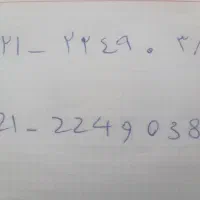 ۲۱ - ۲۲۴۹۰۳۸
21 - 2249038